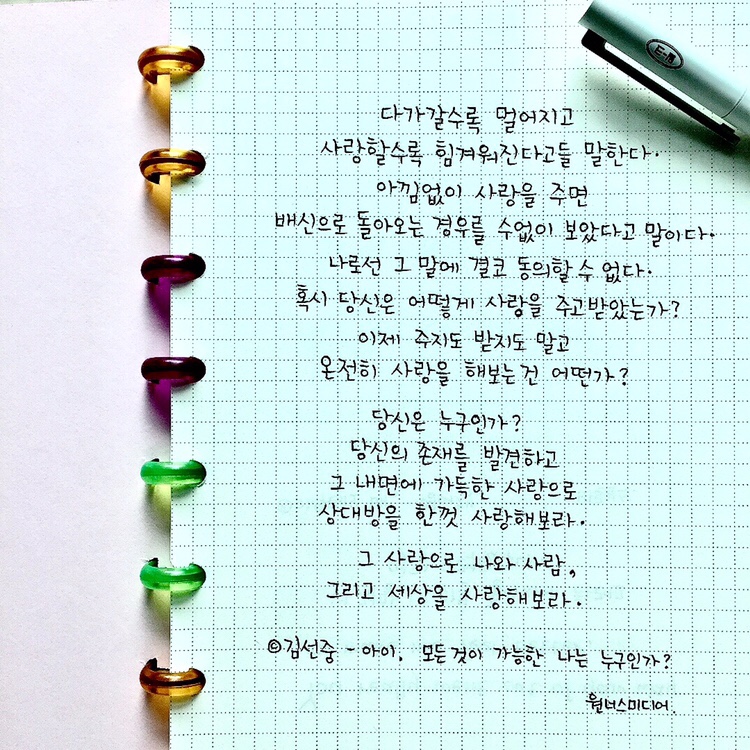 다가갈수록 멀어지고
사랑할수록 힘겨워진다고들 말한다.
아낌없이 사랑을 주면
배신으로 돌아오는 경유를 수없이 보았다고 말이다.
나로선 그 말에 결코 동의할 수 없다.
혹시 당신은 어떻게 사랑을 주고받았는가?
이제 주지도 받지도 말고
온전히 사랑을 해보는건 어떤가?
당신은 누구인가?
당신의 존재를 발견하고
그 내면에 가득한 사랑으로
상대방을 한껏 사랑해보라.
그 사랑으로 나와 사람,
그리고 세상을 사랑해보라.
©김선중 - 아이, 모든것이 가능한 나는 누구인가?
원너스미디어.